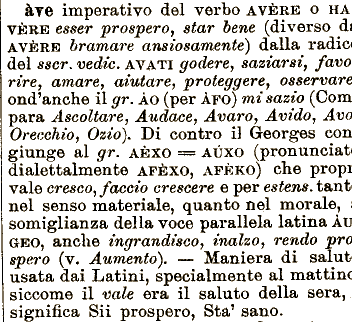 àve imperativo del verbo AVÈRE O HA
VÈRE esser prospero, star bene (diverso da
AVÈRE bramare ansiosamente) dalla radice
del sscr. vedic. AVATI godere, saziarsi, favo
rire, amare, aiutare, proteggere, osservare
ond'anche il gr. ÀO (per ÀFO) mi sazio (Com
para Ascoltare, Audace, Avaro, Avido, Avo
Orecchio, Ozio). Di contro il Georges con
giunge al gr. AÈXO = AÚXO (pronunciato
dialettalmente AFÈXO, AFÉKO) che propr
vale cresco, faccio crescere e per estens. tanto
nel senso materiale, quanto nel morale, a
somiglianza della voce parallela latina ÀU
GEO, anche ingrandisco, inalzo, rendo pro
spero (v. Aumento). — Maniera di salut
usata dai Latini, specialmente al mattino
siccome il vale era il saluto della sera,
significa Sii prospero, Sta' sano.